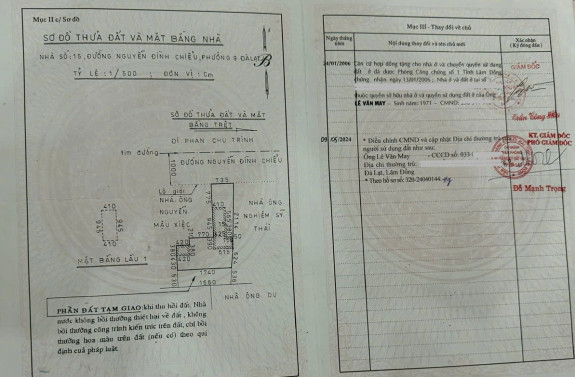 Mục II c/ Sơ đồ
SƠ ĐỒ THỬA ĐẤT VÀ MẶT BẰNG NHÀ
NHÀ SỐ: 15, ĐƯỜNG NGUYỄN ĐÌNH CHIỂU, PHƯỜNG 9 ĐÀLẠT
TỶ LỆ: 1/500 ; ĐƠN VỊ: Cm
B
SƠ ĐỒ THỬA ĐẤT VÀ MẶT
BẰNG TRỆT
ĐI PHAN CHU TRINH
tim đường
ĐƯỜNG NGUYỄN ĐÌNH CHIỂU
1000
Lộ giới
735
NHÀ ÔNG
NGUYỄN
MẬU XIỆC
NHÀ ÔNG
NGHIÊM SỸ
THÁI
410
945
945
410
MẶT BẰNG LẦU 1
410
770
420
420
1740
1590
NHÀ ÔNG DU
PHẦN ĐẤT TẠM GIAO: khi thu hồi đất. Nhà
nước không bồi thường thiệt hại về đất, không
bồi thường công trình kiến trúc trên đất, chỉ bồi
thường hoa màu trên đất (nếu có) theo qui
định của pháp luật.
Mục III - Thay đổi về chủ
Ngày tháng năm
Nội dung thay đổi và tên chủ mới
Xác nhận
(Ký đóng dấu)
24/01/2006
Căn cứ hợp đồng tặng cho nhà ở và chuyển quyền sử dụng
đất ở đã được Phòng Công chứng số 1 Tỉnh Lâm Đồng
chứng nhận ngày 13/01/2006; Nhà ở và đất ở tại số
thuộc quyền sở hữu nhà ở và quyền sử dụng đất ở của Ông
LÊ VĂN MAY - Sinh năm: 1971 - CMND:
GIÁM ĐỐC
09/05/2024
* Điều chỉnh CMND và cập nhật Địa chỉ thường trú của
người sử dụng đất như sau:
Ông Lê Văn May - CCCD số: 0331
Địa chỉ thường trú:
Đà Lạt, Lâm Đồng
* Theo hồ sơ số: 320-24040144
KT. GIÁM ĐỐC
PHÓ GIÁM ĐỐC
Đỗ Mạnh Trong